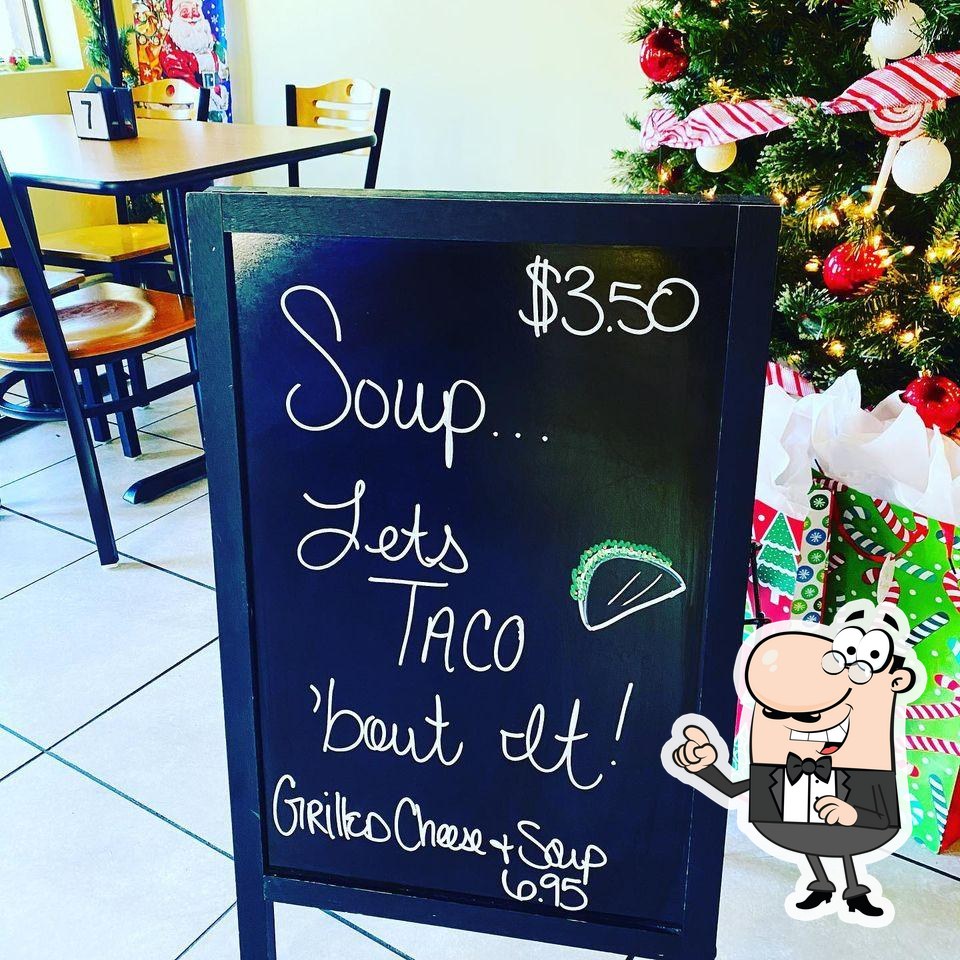 7
$3.50
Soup...
Lets
TACO
'bout It!
Grilled Cheese + Soup
6.95